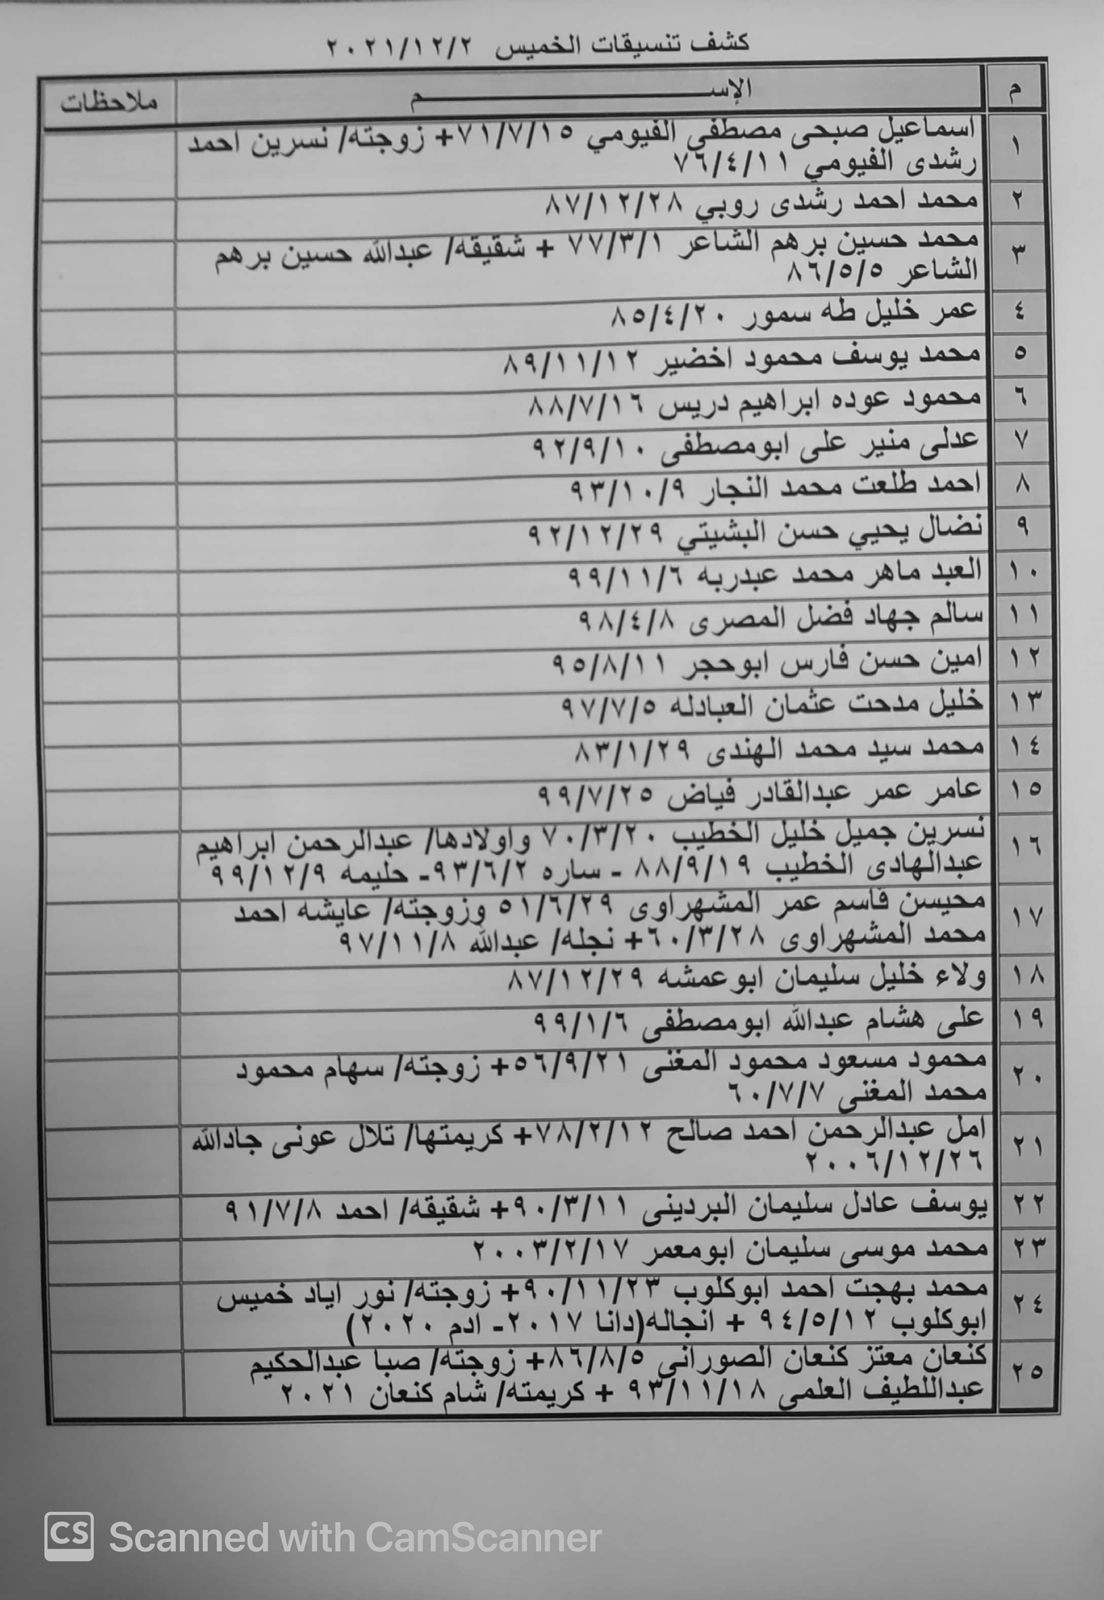 كشف تنسيقات الخميس ٢٠٢١/١٢/٢
م الإســـــــــــــــــــــــــم ملاحظات
١ اسماعيل صبحى مصطفى الفيومي ٧١/٧/١٥+ زوجته/ نسرين احمد
رشدى الفيومي ٧٦/٤/١١
٢ محمد احمد رشدى روبي ٨٧/١٢/٢٨
٣ محمد حسين برهم الشاعر ٧٧/٣/١ + شقيقه/ عبدالله حسين برهم
الشاعر ٨٦/٥/٥
٤ عمر خليل طه سمور ٨٥/٤/٢٠
٥ محمد يوسف محمود اخضير ٨٩/١١/١٢
٦ محمود عوده ابراهيم دريس ٨٨/٧/١٦
٧ عدلى منير على ابومصطفى ٩٢/٩/١٠
٨ احمد طلعت محمد النجار ٩٣/١٠/٩
٩ نضال يحيي حسن البشيتي ٩٢/١٢/٢٩
١٠ العبد ماهر محمد عبدربه ٩٩/١١/٦
١١ سالم جهاد فضل المصرى ٩٨/٤/٨
١٢ امين حسن فارس ابوحجر ٩٥/٨/١١
١٣ خليل مدحت عثمان العبادله ٩٧/٧/٥
١٤ محمد سيد محمد الهندى ٨٣/١/٢٩
١٥ عامر عمر عبدالقادر فياض ٩٩/٧/٢٥
١٦ نسرين جميل خليل الخطيب ٧٠/٣/٢٠ واولادها/ عبدالرحمن ابراهيم
عبدالهادى الخطيب ٨٨/٩/١٩ - ساره ٩٣/٦/٢- حليمه ٩٩/١٢/٩
١٧ محيسن قاسم عمر المشهراوى ٥١/٦/٢٩ وزوجته/ عايشه احمد
محمد المشهراوى ٦٠/٣/٢٨+ نجله/ عبدالله ٩٧/١١/٨
١٨ ولاء خليل سليمان ابوعمشه ٨٧/١٢/٢٩
١٩ على هشام عبدالله ابومصطفى ٩٩/١/٦
٢٠ محمود مسعود محمود المغنى ٥٦/٩/٢١+ زوجته/ سهام محمود
محمد المغنى ٦٠/٧/٧
٢١ امل عبدالرحمن احمد صالح ٧٨/٢/١٢+ كريمتها/ تلال عونى جادالله
٢٠٠٦/١٢/٢٦
٢٢ يوسف عادل سليمان البردينى ٩٠/٣/١١+ شقيقه/ احمد ٩١/٧/٨
٢٣ محمد موسى سليمان ابومعمر ٢٠٠٣/٢/١٧
٢٤ محمد بهجت احمد ابوكلوب ٩٠/١١/٢٣+ زوجته/ نور اياد خميس
ابوكلوب ٩٤/٥/١٢ + انجاله(دانا ٢٠١٧- ادم ٢٠٢٠)
٢٥ كنعان معتز كنعان الصورانى ٨٦/٨/٥+ زوجته/ صبا عبدالحكيم
عبداللطيف العلمى ٩٣/١١/١٨ + كريمته/ شام كنعان ٢٠٢١
CS Scanned with CamScanner